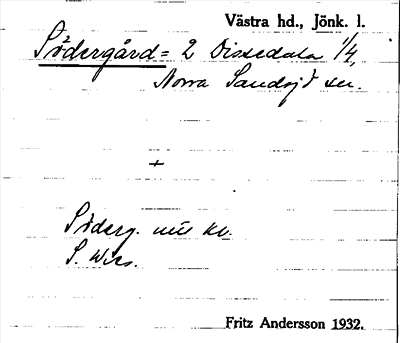 Västra hd., Jönk. l.
Södergård = 2 Dissedala 1/4,
Norra Sandsjö sn.
+
Söderg.
S.
Fritz Andersson 1932.